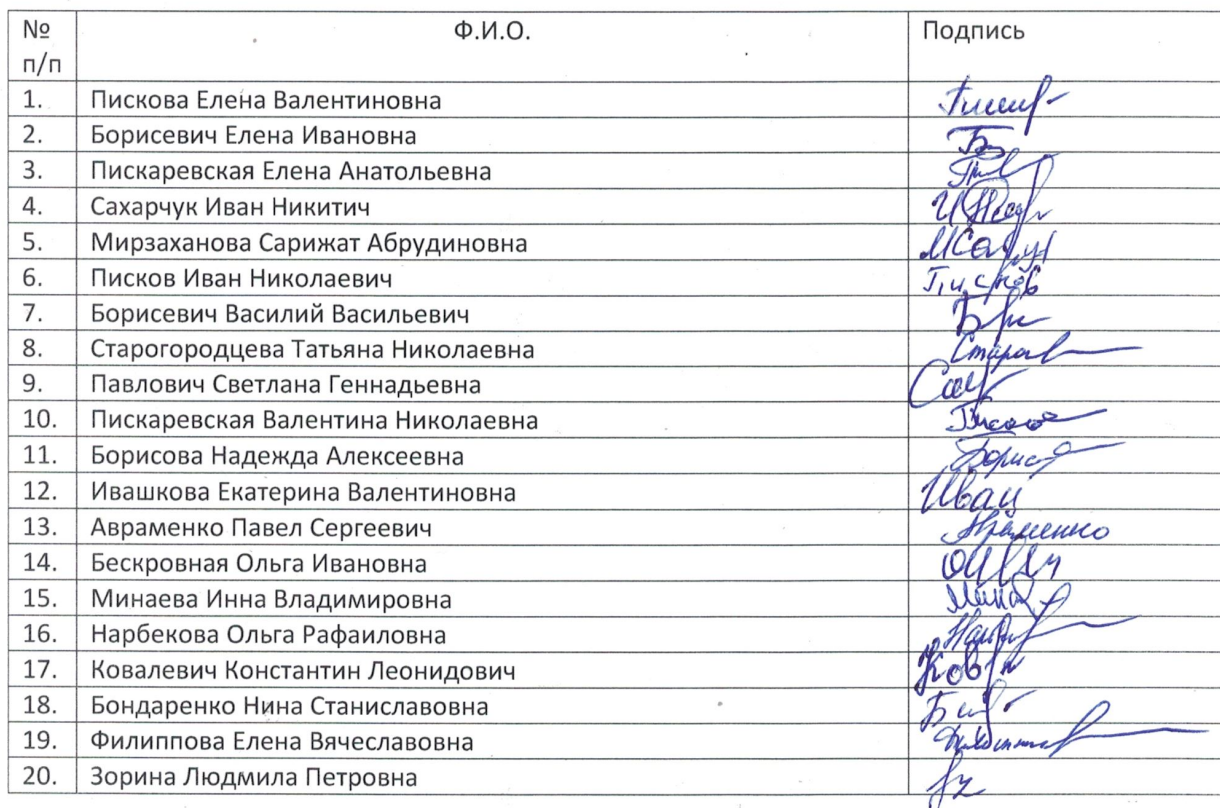 № Ф.И.О. Подпись
п/п
1. Пискова Елена Валентиновна
2. Борисевич Елена Ивановна
3. Пискаревская Елена Анатольевна
4. Сахарчук Иван Никитич
5. Мирзаханова Сарижат Абрудиновна
6. Писков Иван Николаевич Писков
7. Борисевич Василий Васильевич
8. Старогородцева Татьяна Николаевна
9. Павлович Светлана Геннадьевна
10. Пискаревская Валентина Николаевна
11. Борисова Надежда Алексеевна
12. Ивашкова Екатерина Валентиновна
13. Авраменко Павел Сергеевич
14. Бескровная Ольга Ивановна
15. Минаева Инна Владимировна
16. Нарбекова Ольга Рафаиловна
17. Ковалевич Константин Леонидович
18. Бондаренко Нина Станиславовна
19. Филиппова Елена Вячеславовна
20. Зорина Людмила Петровна